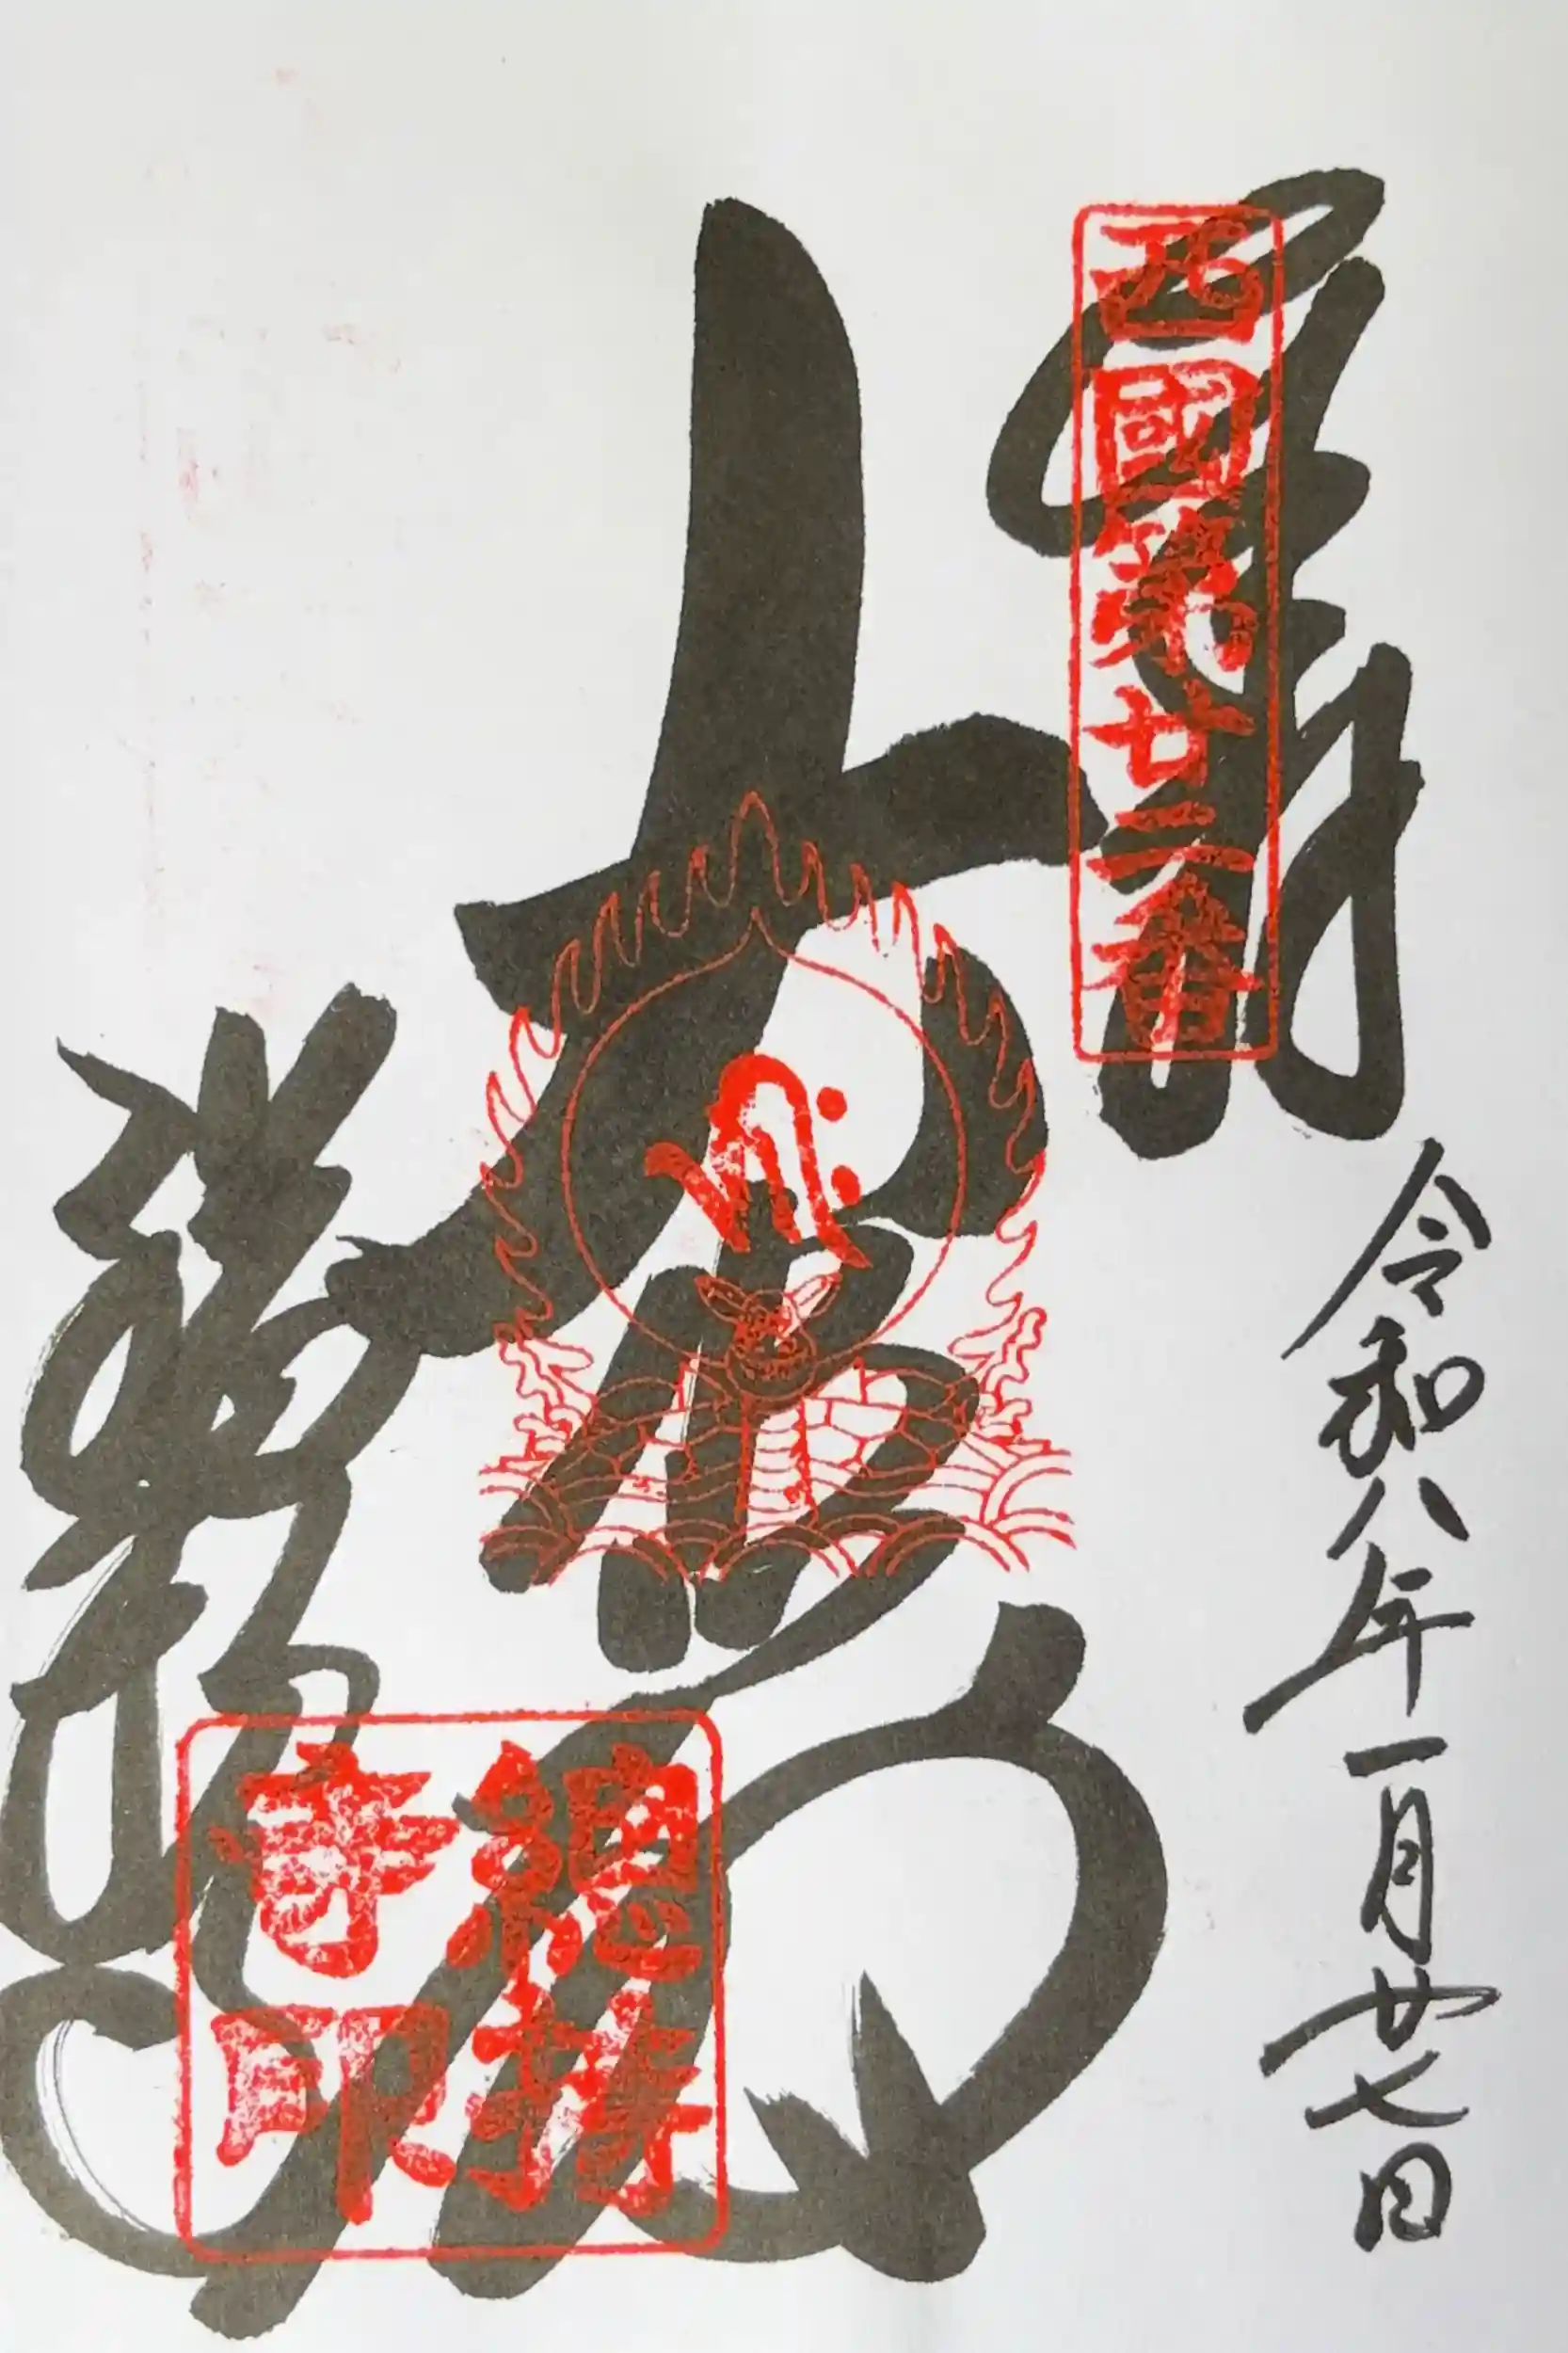 奉拝
西國第廿二番
令和八年一月廿七日
大悲
總持寺
總持
寺印